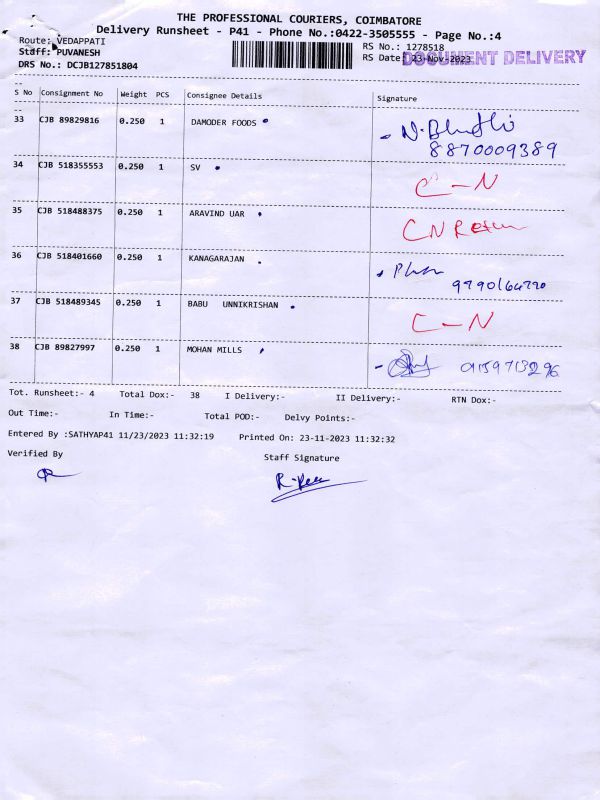 THE PROFESSIONAL COURIERS, COIMBATORE
Delivery Runsheet - P41 - Phone No.:0422-3505555 - Page No.:4
Route: VEDAPPATI
RS No.: 1278518
Staff: PUVANESH
RS Date: 23-Nov-2023
DOCUMENT DELIVERY
DRS No.: DCJB127851804
S No Consignment No Weight PCS Consignee Details Signature
33 CJB 89829816 0.250 1 DAMODER FOODS
8870009389
34 CJB 518355553 0.250 1 SV C-N
35 CJB 518488375 0.250 1 ARAVIND UAR CN
36 CJB 518401660 0.250 1 KANAGARAJAN
37 CJB 518489345 0.250 1 BABU UNNIKRISHAN C-N
38 CJB 89827997 0.250 1 MOHAN MILLS
Tot. Runsheet:- 4 Total Dox:- 38 I Delivery:- II Delivery:- RTN Dox:-
Out Time:- In Time:- Total POD:- Delvy Points:-
Entered By :SATHYAP41 11/23/2023 11:32:19 Printed On: 23-11-2023 11:32:32
Verified By Staff Signature